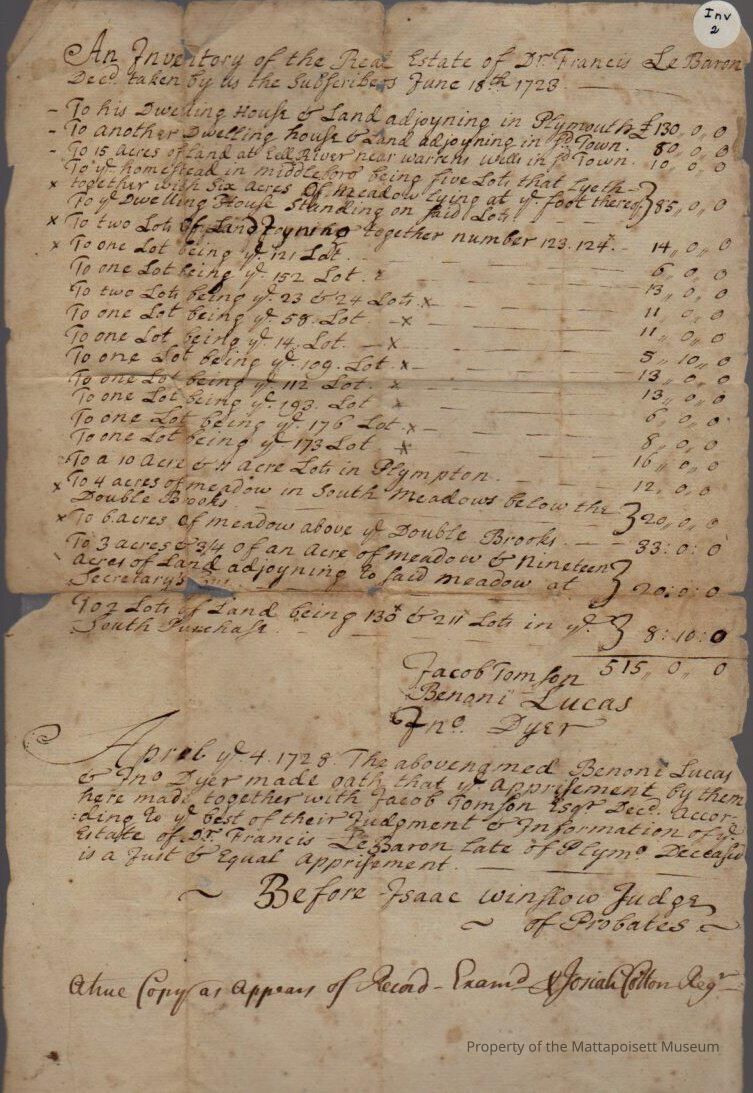 Inv
2
An Inventory of the Real Estate of Dr. Francis Le Baron
Decd. taken by us the Subscribers June 18th 1723
- To his Dwelling House & Land adjoyning in Plymouth £130,, 0,, 0
- To another Dwelling house & Land adjoyning in sd. Town. 80,, 0,, 0
- To 15 Acres of land at Eel River near warrens wells in sd. Town. 10,, 0,, 0
To ye. homestead in middleboro being five Lots that Lyeth
x together with Six Acres of meadow lying at ye. foot thereof
To ye. Dwelling House Standing on said Lots } 85,, 0,, 0
x To two Lots of Land Lyning together number 123. 124. 14,, 0,, 0
x To one Lot being ye. 121 Lot. 6,, 0,, 0
To one Lot being ye. 152 Lot. 13,, 0,, 0
To two Lots being ye. 23 & 24 Lots. x 11,, 0,, 0
To one Lot being ye. 58. Lot. x 11,, 0,, 0
To one Lot being ye. 14. Lot. x 5,, 10,, 0
To one Lot being ye. 109. Lot x 13,, 0,, 0
To one Lot being ye. 112 Lot. x 13,, 0,, 0
To one Lot being ye. 193. Lot x 6,, 0,, 0
To one Lot being ye. 176 Lot x 8,, 0,, 0
To one Lot being ye. 173 Lot x 16,, 0,, 0
To a 10 Acre & 11 Acre Lots in Plympton. 12,, 0,, 0
x To 4 acres of meadow in South Meadows below the
Double Brooks } 20,, 0,, 0
x To 6 acres of meadow above ye. Double Brooks 33: 0: 0
To 3 acres & 3/4 of an Acre of meadow & Nineteen
Acres of Land adjoyning to said meadow at } 20: 0: 0
Secretary's
To 2 Lots of Land being 130 & 211 Lots in ye. } 8: 10: 0
South Purchase.
515,, 0,, 0
Jacob Tomson
Benoni Lucas
Jno. Dyer
Aprel ye. 4. 1728. The abovenamed Benoni Lucas
& Jno Dyer made oath that ye Apprisement by them
here made together with Jacob Tomson Esqr Decd. Accor-
:ding to ye best of their Judgment & Information of ye
Estate of Dr. Francis Le Baron Late of Plymo Deceased
is a Just & Equal Apprisement.
~ Before Isaac Winslow Judge
~ of Probates. ~
A true Copy as Appears of Record - Examd. Josiah Cotton Regr
Property of the Mattapoisett Museum